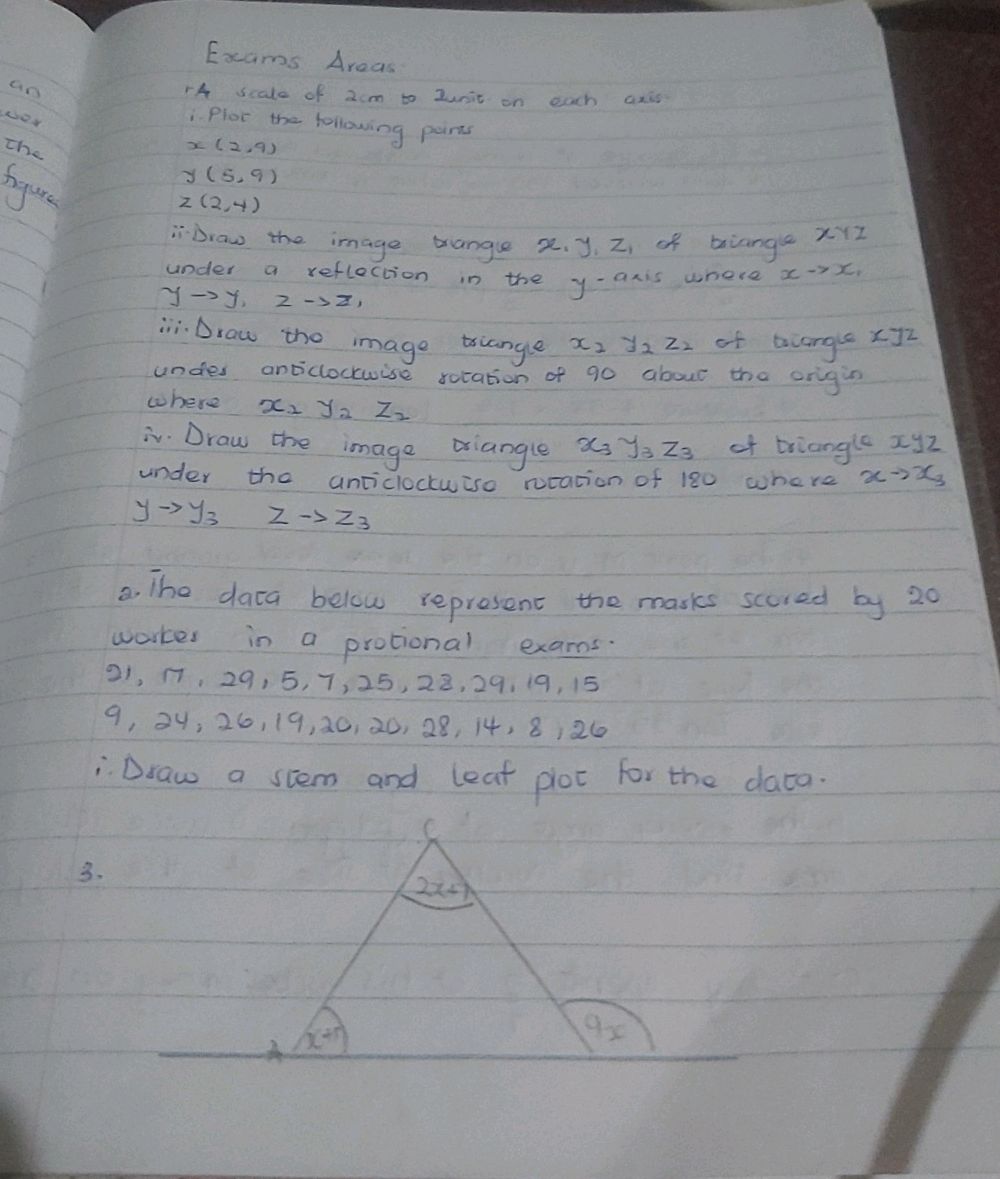 an
wer
the
figure
Exams Areas
1. A scale of 2cm to 2unit on each axis
i. Plot the following points
x (2,9)
y (5,9)
z (2,4)
ii. Draw the image triangle x₁ y₁ z₁ of triangle XYZ
under a reflection in the y-axis where x->x₁
y->y₁ z->z₁
iii. Draw the image triangle x₂ y₂ z₂ of triangle xyz
under anticlockwise rotation of 90 about the origin
where x₂ y₂ z₂
iv. Draw the image triangle x₃ y₃ z₃ of triangle xyz
under the anticlockwise rotation of 180 where x->x₃
y->y₃ z->z₃
2. The data below represent the masks scored by 20
workes in a protional exams.
21, 17, 29, 5, 7, 25, 28, 29, 19, 15
9, 24, 26, 19, 20, 20, 28, 14, 8, 26
i. Draw a stem and leaf plot for the data.
3.
C
A